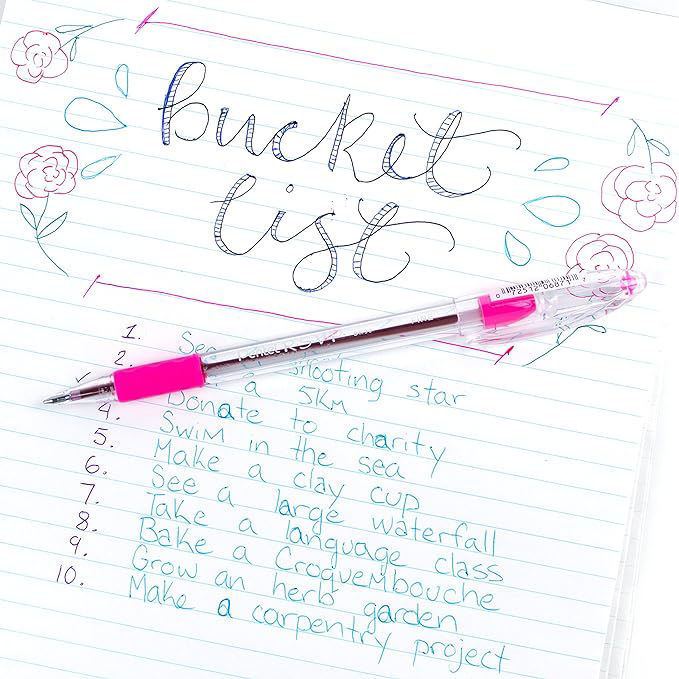 bucket
list
0 72512 06871 7
Pentel
FINE
1. See shooting star
2. a 5km
Donate to charity
4. Swim in the sea
5. Make a clay cup
6. See a large waterfall
7. Take a language class
8. Bake a Croquembouche
9. Grow an herb garden
10. Make a carpentry project